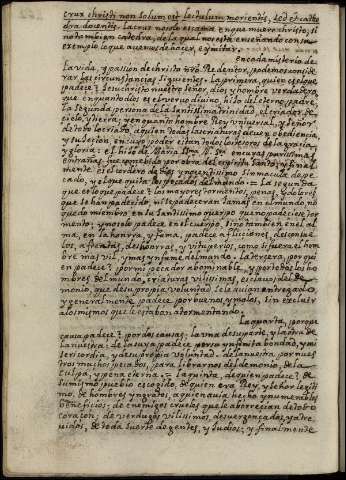 crux christi non solum est lectulum morientis, sed et cathe
dra docentis. La cruz no solo es cama en que muere christo, si
no tambien catedra, de la qual nos esta enseñando con su
exemplo lo que auemos de hacer, e ymitar.
en cada misterio de
la vida, y passion de christo nro. Redentor, podemos consider
rar las circunstancias siguientes. La primera, quien es el que
padece? Jesuchristo nuestro señor, dios y hombre verdadero,
que en quanto dios es el verbo diuino, hijo del eterno padre,
la segunda persona de la santissima trinidad, el criador de
cielo, y tierra; y en quanto hombre Rey uniuersal, y señor
de todo lo criado, a quien todas las criaturas deuen obediencia,
y sujecion, en cuyo poder estan todos los tesoros de la gracia,
y gloria: el hijo de Maria
entrañas, que concebido por obra del espiritu santo; y final
mente es el cordero de dios, ynocentissimo sin macula de pe
cado, y el que quita los pecados del mundo. = La segunda
que es lo que padece? los mayores tormentos, penas, y dolores
que se han padecido, ni se padeceran jamas en el mundo, no
quedo miembro en su santissimo cuerpo que no padeciese tor
mento; y no solo padece en el cuerpo, sino tambien en el al
ma, en la honrra, y fama, padece aflicciones, desconsue
los, afrentas, deshonrras, y vituperios, como si fuera el hom
bre mas vil y mas ynfame del mundo. La tercera, por qui
en padece? por mi pecador abominable, y por todos los hom
bres del mundo, criaturas vilissimas, esclauas del de
monio, que de su propia voluntad se le auian entregado
y generalmente, padece por buenos, y malos, sin excluir
a los mismos que le estaban atormentando.
La quarta, porque
causa padece? por dos causas: la una de su parte, y la otra de
la nuestra; de la suya padece por su ynfinita bondad, y mi
sericordia, y de su propia voluntad. de la nuestra, por nues
tros muchos pecados, para librarnos del demonio, de la
culpa, y pena eterna. = La quinta, de quien padece? de
su mismo pueblo escogido, de quien era Rey, y señor legiti
mo, de hombres yngratos, a quien auia hecho ynumerables
beneficios; de enemigos crueles que le aborrecian de todo
coraçon; de verdugos vilissimos, desuergonçados, y atre
uidos, de toda suerte de gentes, y judios; y finalmente